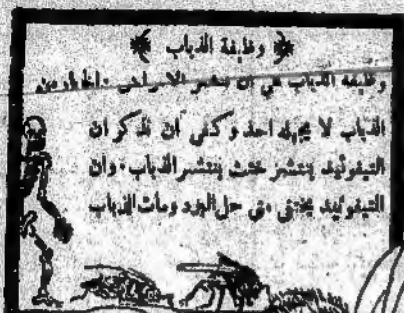 وظيفة الذباب
وظيفة الذباب هي ان ينشر الامراض ، من
الذباب لا يجهله احد وكفى ان نذكر ان
التيفوئيد ينتشر حيث ينتشر الذباب ، وان
التيفوئيد يختفي متى حل البرد ومات الذباب